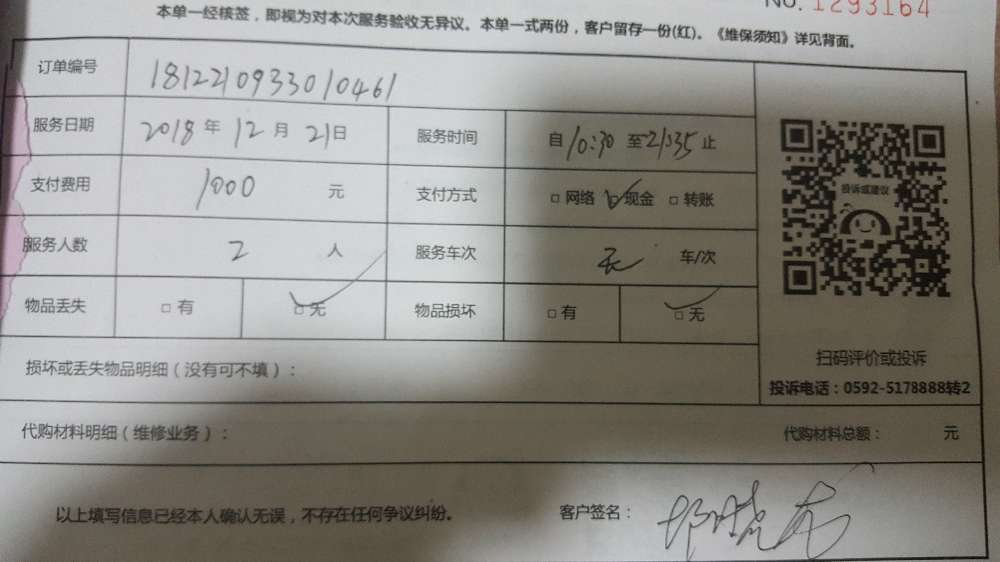 NO. 1293164
本单一经核签，即视为对本次服务验收无异议。本单一式两份，客户留存一份(红)。《维保须知》详见背面。
订单编号 1812210933010461
服务日期 2018 年 12 月 21 日 服务时间 自 10:30 至 21:35 止
支付费用 1000 元 支付方式 □ 网络 □ 现金 □ 转账
服务人数 2 人 服务车次 无 车/次
物品丢失 □ 有 □ 无 物品损坏 □ 有 □ 无
投诉或建议
损坏或丢失物品明细（没有可不填）：
扫码评价或投诉
投诉电话：0592-5178888转2
代购材料明细（维修业务）： 代购材料总额： 元
以上填写信息已经本人确认无误，不存在任何争议纠纷。 客户签名：